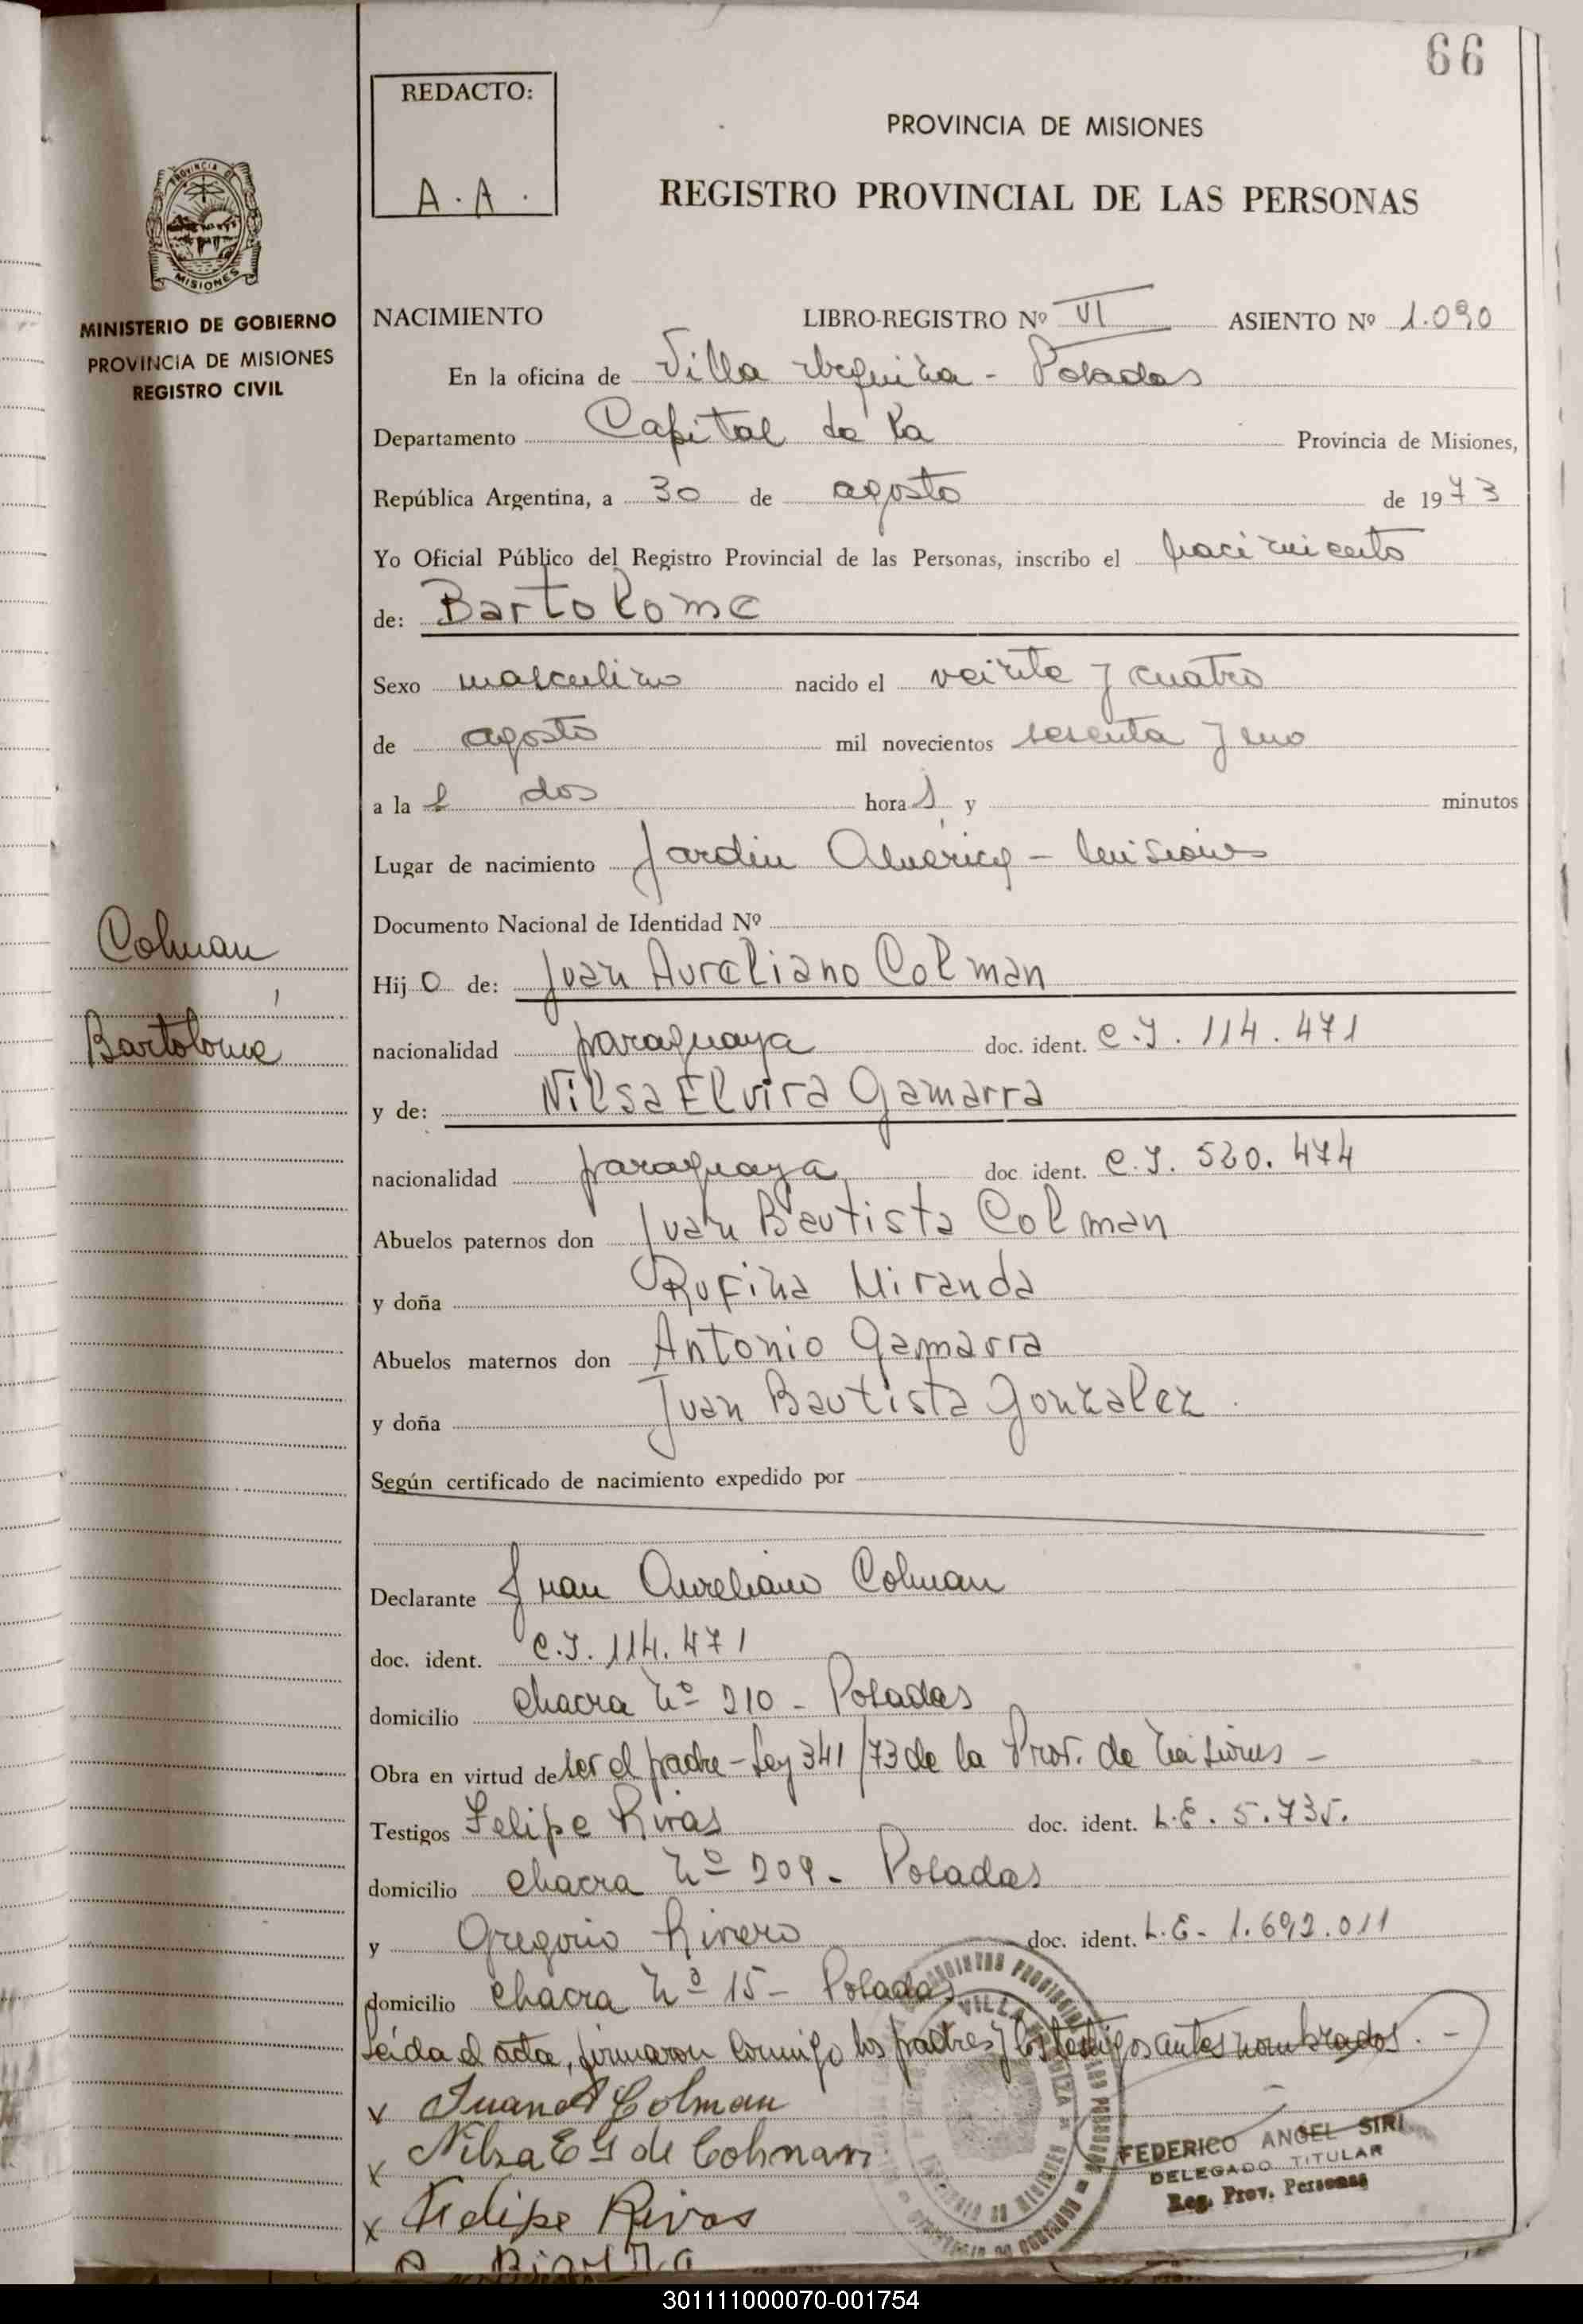 66
REDACTO:
A. A.
PROVINCIA DE MISIONES
REGISTRO PROVINCIAL DE LAS PERSONAS
PROVINCIA DE
MISIONES
MINISTERIO DE GOBIERNO
PROVINCIA DE MISIONES
REGISTRO CIVIL
NACIMIENTO LIBRO-REGISTRO Nº VI ASIENTO Nº 1.090
En la oficina de Villa Urquiza - Posadas
Departamento Capital de la Provincia de Misiones,
República Argentina, a 30 de agosto de 1973
Yo Oficial Público del Registro Provincial de las Personas, inscribo el nacimiento
de: Bartolome
Sexo masculino nacido el veinte y cuatro
de agosto mil novecientos sesenta y uno
a la s dos hora s y minutos
Lugar de nacimiento Jardin America - Misiones
Documento Nacional de Identidad Nº
Colman
Bartolomé
Hij o de: Juan Aureliano Colman
nacionalidad paraguaya doc. ident. C.I. 114.471
y de: Nilsa Elvira Gamarra
nacionalidad paraguaya doc. ident. C.I. 520.474
Abuelos paternos don Juan Bautista Colman
y doña Rufina Miranda
Abuelos maternos don Antonio Gamarra
y doña Juan Bautista Gonzalez.
Según certificado de nacimiento expedido por
Declarante Juan Aureliano Colman
doc. ident. C.I. 114.471
domicilio chacra Nº 210 - Posadas
Obra en virtud de ser el padre - Ley 341/73 de la Prov. de Misiones -
Testigos Felipe Rivas doc. ident. L.E. 5.735.
domicilio chacra Nº 209 - Posadas
y Gregorio Rivero doc. ident. L.E- 1.692.011
domicilio chacra Nº 15 - Posadas
Leída el acta, firmaron conmigo los padres y los testigos antes nombrados. -
x Juan A Colman
x Nilsa E G de Colman
x Felipe Rivas
FEDERICO ANGEL SIRI
DELEGADO TITULAR
Reg. Prov. Personas
301111000070-001754